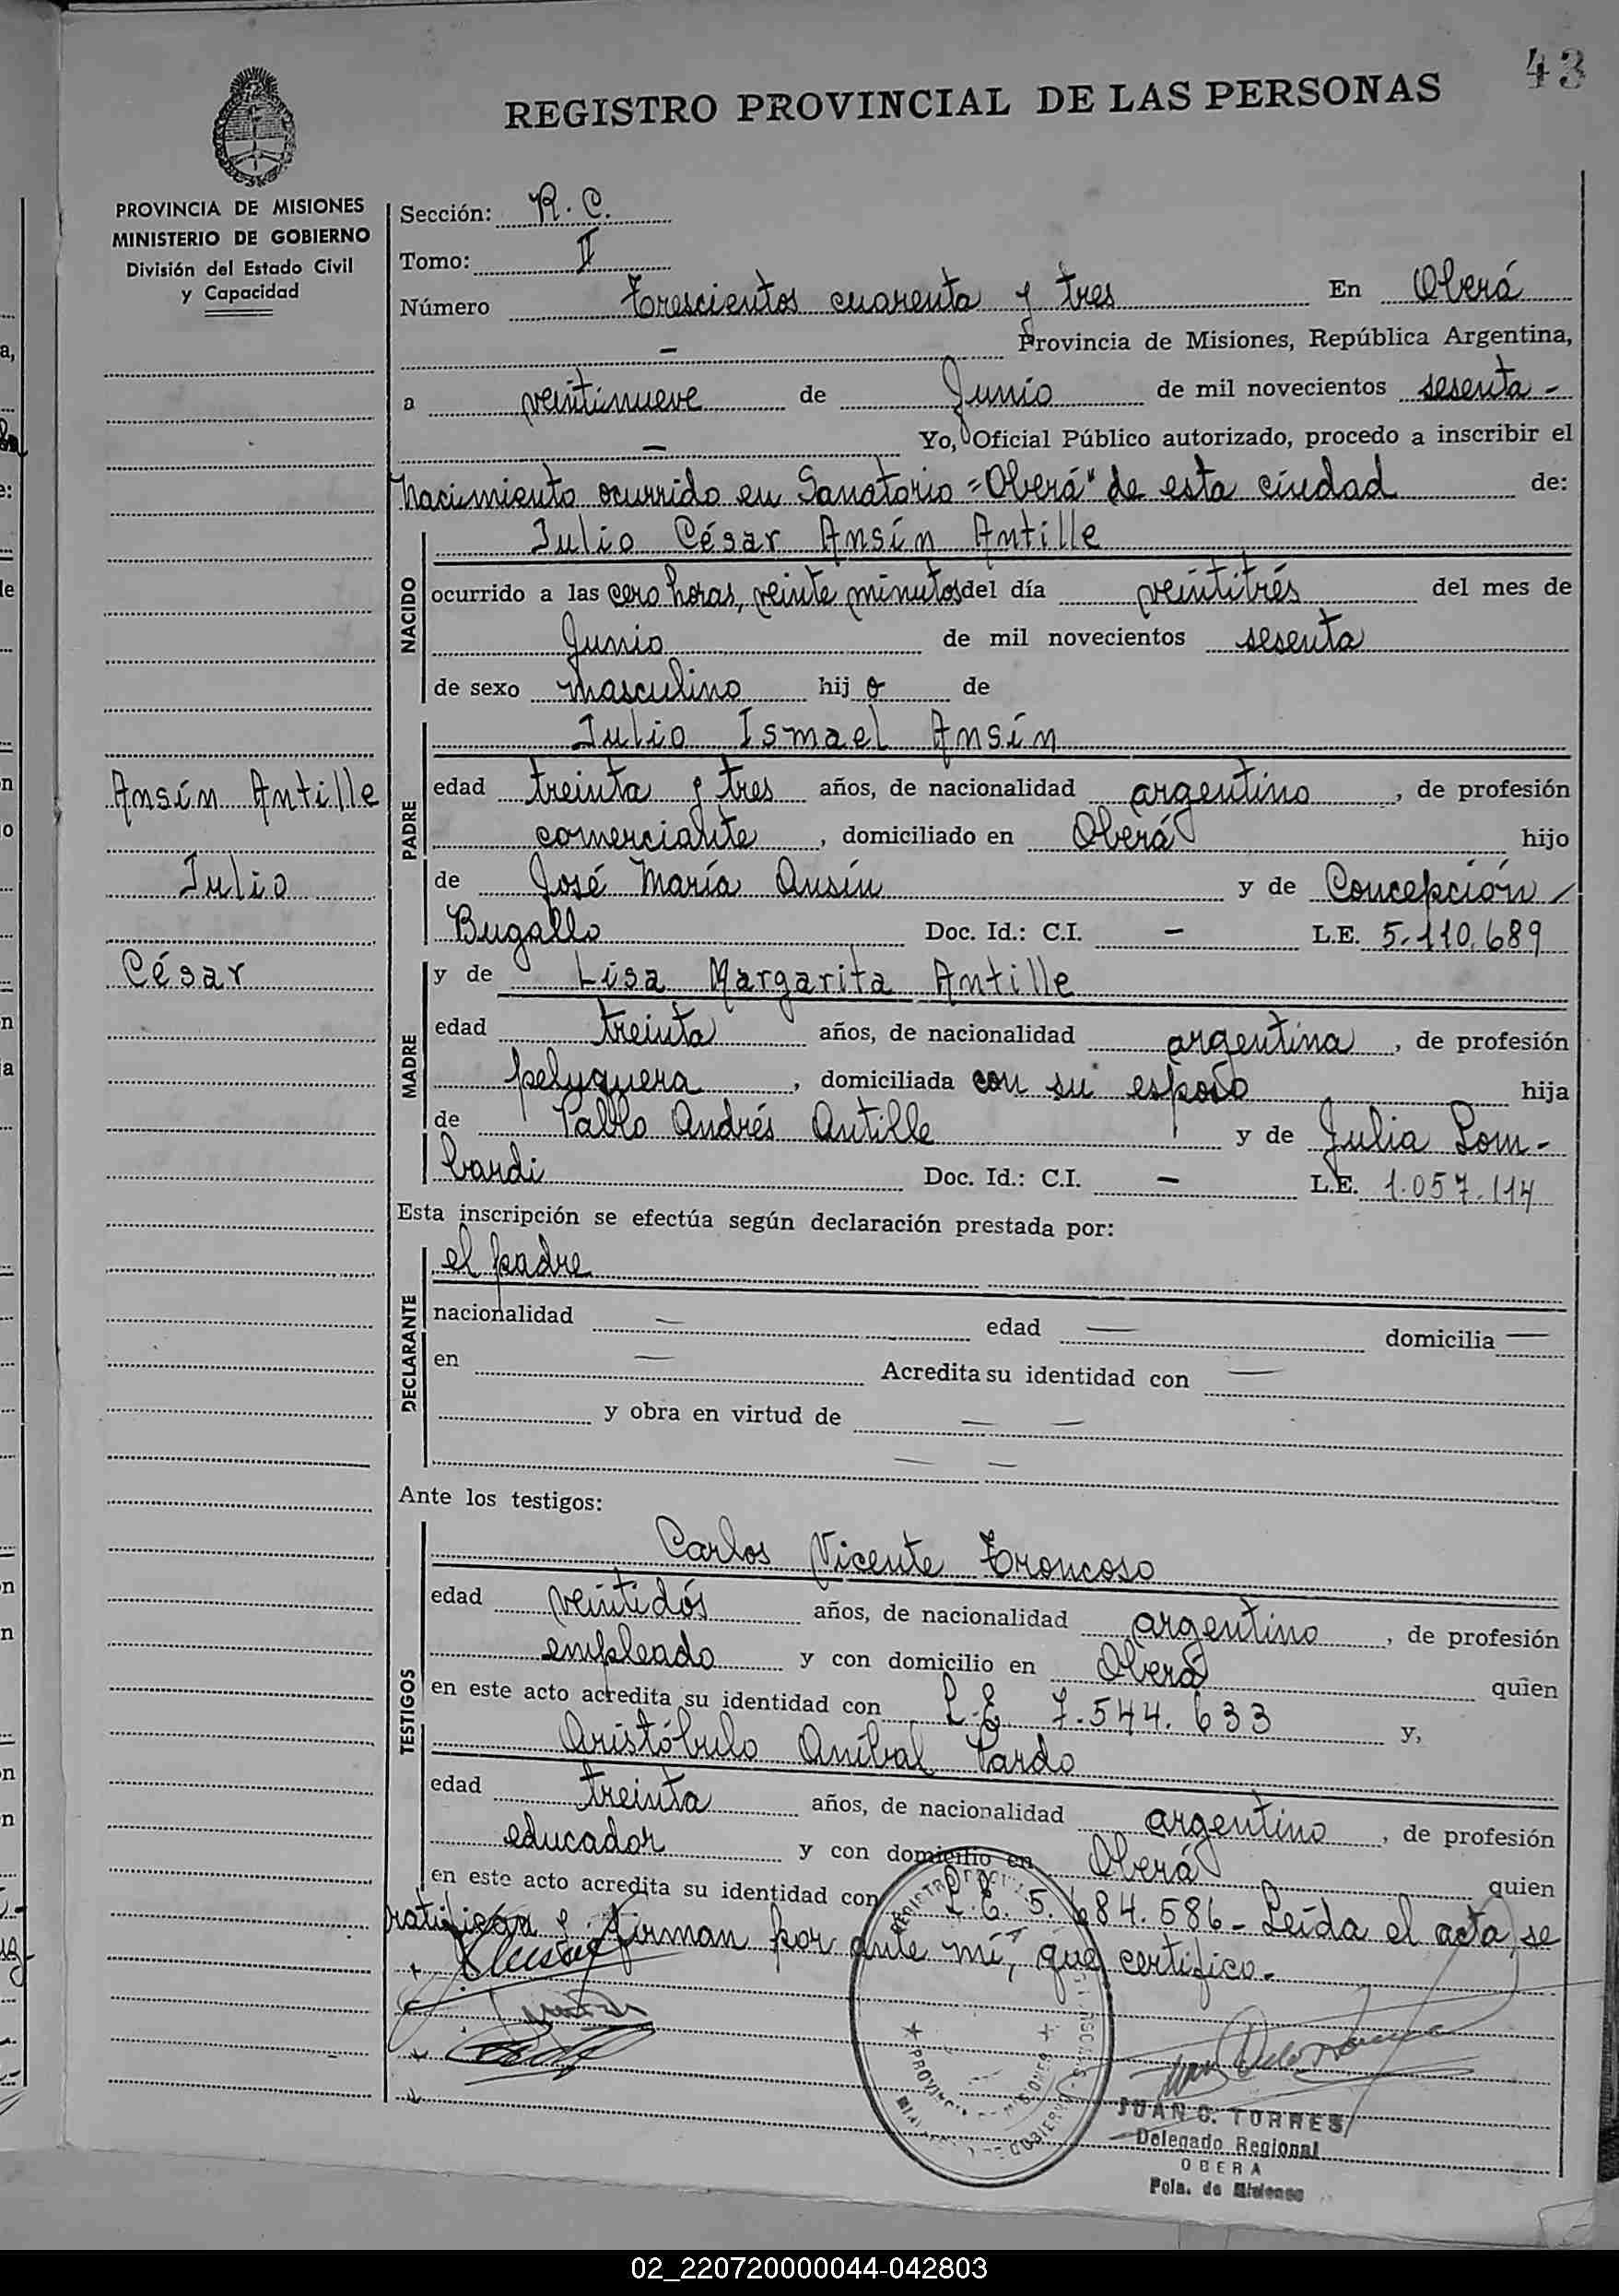 43
REGISTRO PROVINCIAL DE LAS PERSONAS
PROVINCIA DE MISIONES
MINISTERIO DE GOBIERNO
División del Estado Civil
y Capacidad
Sección: R. C.
Tomo: II
Número Trescientos cuarenta y tres En Oberá
– Provincia de Misiones, República Argentina,
a veintinueve de Junio de mil novecientos sesenta -
– Yo, Oficial Público autorizado, procedo a inscribir el
nacimiento ocurrido en Sanatorio "Oberá" de esta ciudad de:
NACIDO
Julio César Ansín Antille
ocurrido a las cero horas, veinte minutos del día veintitrés del mes de
Junio de mil novecientos sesenta
de sexo masculino hijo de
PADRE
Julio Ismael Ansín
edad treinta y tres años, de nacionalidad argentino, de profesión
comerciante, domiciliado en Oberá hijo
de José María Ansín y de Concepción
Bugallo Doc. Id.: C.I. – L.E. 5.110.689
Ansín Antille
Julio
César
MADRE
y de Lisa Margarita Antille
edad treinta años, de nacionalidad argentina, de profesión
peluquera, domiciliada con su esposo hija
de Pablo Andrés Antille y de Julia Lom-
bardi Doc. Id.: C.I. – L.E. 1.057.114
Esta inscripción se efectúa según declaración prestada por:
DECLARANTE
el padre
nacionalidad — edad — domicilia —
en — Acredita su identidad con —
y obra en virtud de — —
— —
Ante los testigos:
TESTIGOS
Carlos Vicente Troncoso
edad veintidós años, de nacionalidad argentino, de profesión
empleado y con domicilio en Oberá quien
en este acto acredita su identidad con L.E. 7.544.633 y,
Aristóbulo Aníbal Pardo
edad treinta años, de nacionalidad argentino, de profesión
educador y con domicilio en Oberá quien
en este acto acredita su identidad con L.E. 5.684.586 - Leída el acta, se
ratifican y firman por ante mí, que certifico.
PROVINCIA DE MISIONES
JUAN C. TORRES
Delegado Regional
OBERA
Pcia. de Misiones
02_220720000044-042803